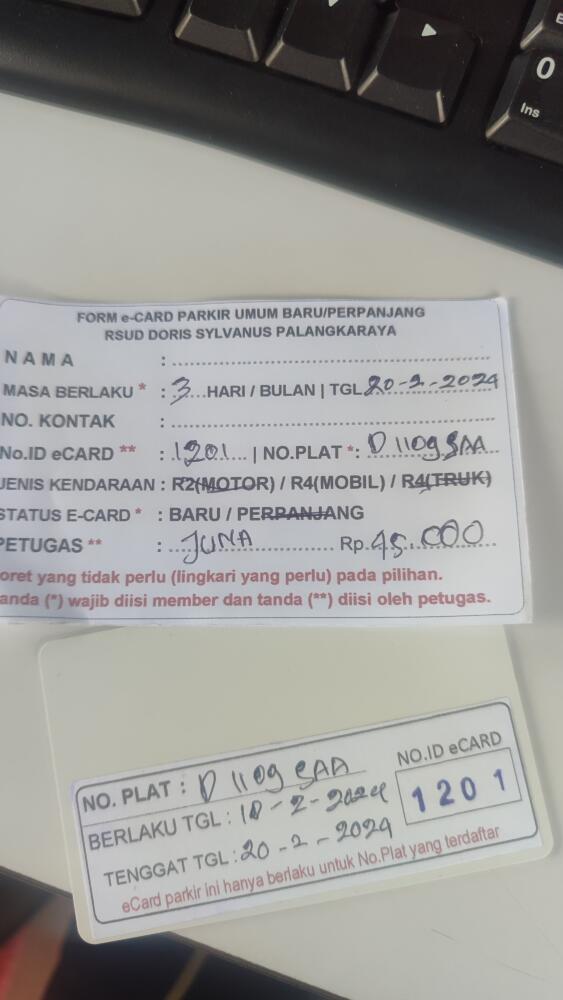 0
Ins
FORM e-CARD PARKIR UMUM BARU/PERPANJANG
RSUD DORIS SYLVANUS PALANGKARAYA
NAMA : ....................
MASA BERLAKU * : 3 HARI / BULAN | TGL 20-2-2024
NO. KONTAK : ....................
No.ID eCARD ** : 1201 | NO.PLAT *: D 1109 SAA
JENIS KENDARAAN : R2(MOTOR) / R4(MOBIL) / R4(TRUK)
STATUS E-CARD * : BARU / PERPANJANG
PETUGAS ** : JUNA Rp. 45.000
oret yang tidak perlu (lingkari yang perlu) pada pilihan.
anda (*) wajib diisi member dan tanda (**) diisi oleh petugas.
NO. PLAT : D 1109 SAA
NO.ID eCARD
BERLAKU TGL : 18-2-2024
1201
TENGGAT TGL : 20-2-2024
eCard parkir ini hanya berlaku untuk No.Plat yang terdaftar